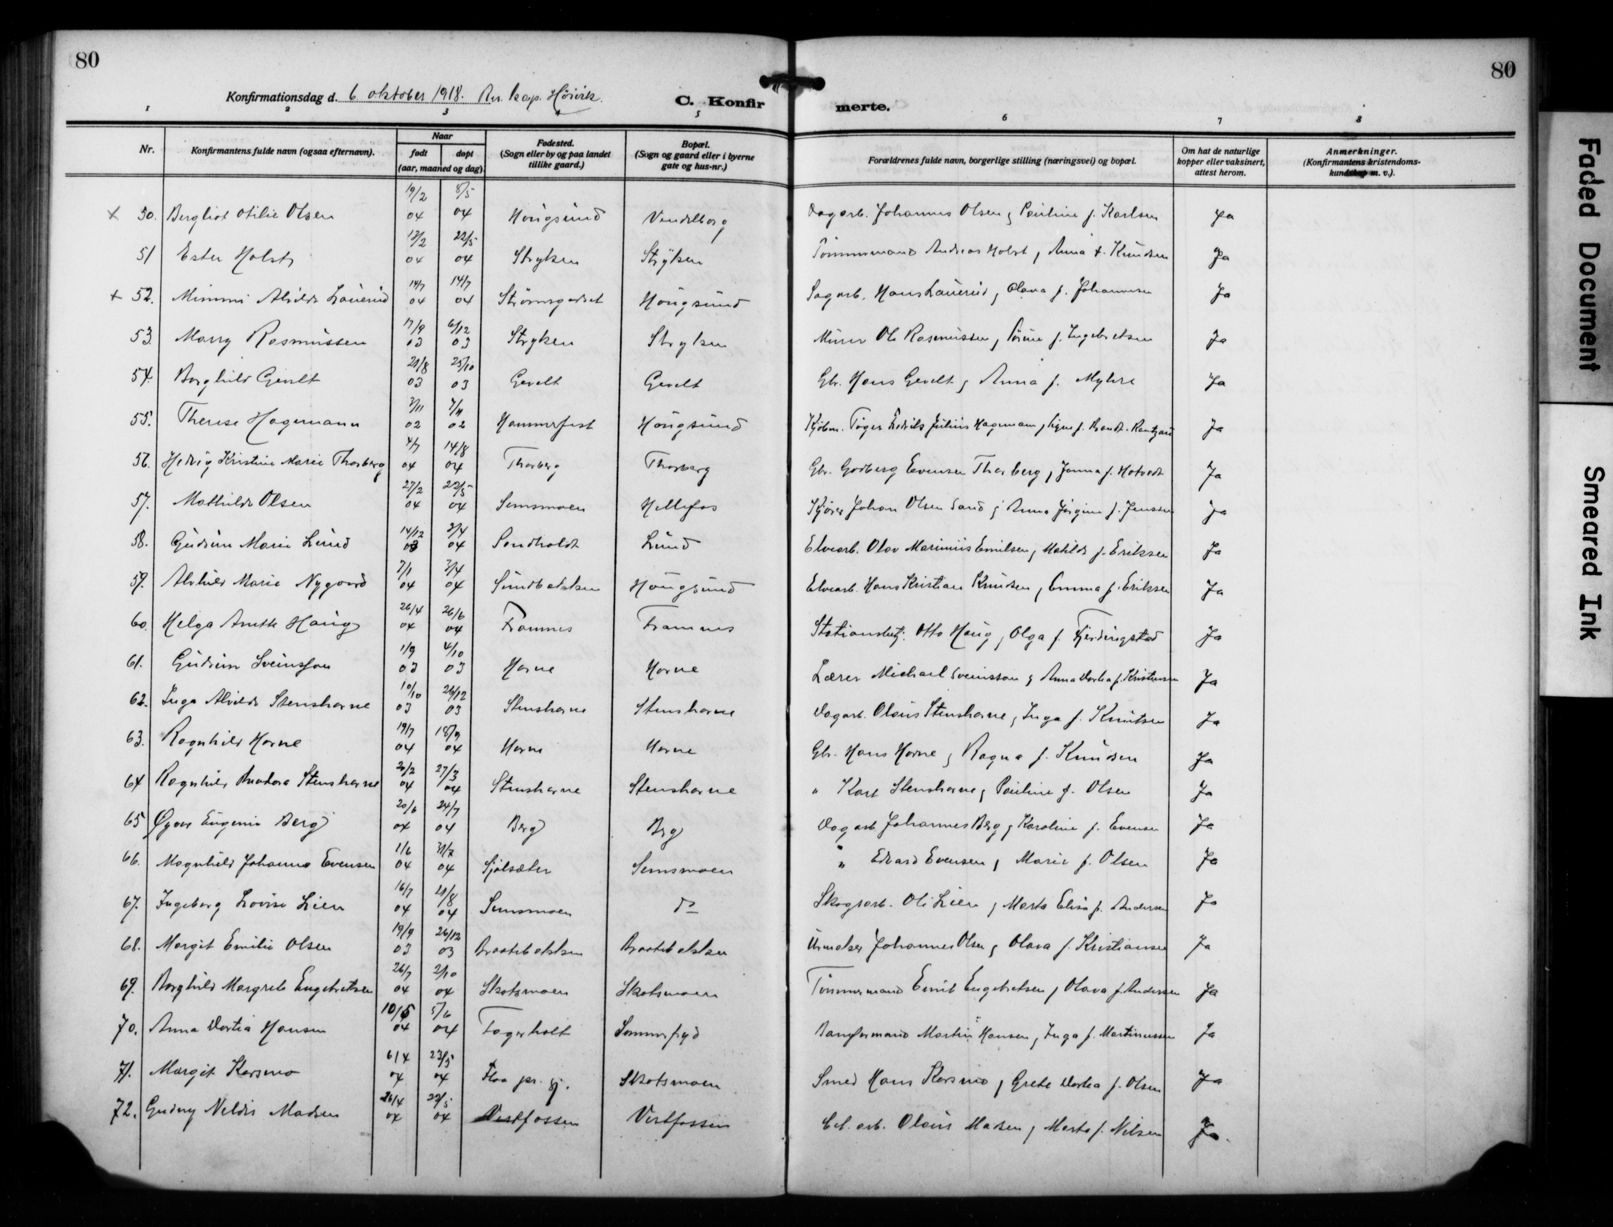 80
80
Konfirmationsdag d. 6 oktober 1918. Res. kap. Hørvik.
C. Konfir merte.
1 2 3 4 5 6 7 8
Nr.
Konfirmantens fulde navn (ogsaa efternavn).
Naar
født
døpt
(aar, maaned og dag).
Fødested.
(Sogn eller by og paa landet
tillike gaard.)
Bopæl.
(Sogn og gaard eller i byerne
gate og hus-nr.)
Forældrenes fulde navn, borgerlige stilling (næringsvei) og bopæl.
Om hat de naturlige
kopper eller vaksinert,
attest herom.
Anmerkninger.
(Konfirmantens kristendoms-
kundskap m. v.).
x 50. Bergliot Otilie Olsen 19/2 04 8/5 04 Hougsund Vendelborg Dagarb. Johannes Olsen, Pauline f. Karlsen Ja
51 Ester Holst 13/2 04 22/5 04 Stryken Stryken Tømmermand Andreas Holst, Anna f. Knudsen Ja
+ 52. Mimmi Alvilde Lauerud 14/7 04 04 Strømsgodset Hougsund Sagarb. Hans Lauerud, Olava f. Johannesen Ja
53. Marry Rasmussen 17/9 03 6/12 03 Stryken Stryken Murer Ole Rasmussen, f. Ingebretsen Ja
54. Borghild Gevelt 03 25/10 03 Gevelt Gevelt Gbr. Hans Gevelt, Anna f. Myhre Ja
55. Therese Hagemann 02 02 Hammerfest Hougsund Kjøbm. Hagemann, Signe f. Ja
56. Hedvig Kristine Marie Thorberg 4/7 04 14/8 04 Thorberg Thorberg Gbr. Godberg Evensen Thorberg, Jenna f. Ja
57. Mathilde Olsen 27/2 04 22/5 04 Semsmoen Hellefos Kjører Johan Olsen Sand, Anna Jørgine f. Jensen Ja
58. Gudrun Marie Lund 14/12 03 3/4 04 Sandholdt Lund Elvearb. Olav Marinius Emilsen, Matilde f. Eriksen Ja
59. Alvhild Marie Nygaard 7/1 04 04 Sundbakken Hougsund Elvearb. Hans Kristian Knudsen, Emma f. Eriksen Ja
60. Helga Anette Haug 26/4 04 26/6 04 Framnes Framnes Otto Haug, Olga f. Fjerdingstad Ja
61. Gudrun Sveinsson 1/9 03 4/10 03 Horne Horne Lærer Michael Sveinsson, Anna Dortea f. Kristensen Ja
62. Inga Alvilde Stenshorne 10/10 03 26/12 03 Stenshorne Stenshorne Dagarb. Olaus Stenshorne, Inga f. Knutsen Ja
63. Ragnhild Horne 19/7 04 18/9 04 Horne Horne Gbr. Hans Horne, Ragna f. Knudsen Ja
64 Ragnhild Stenshorne 04 27/3 04 Stenshorne Stenshorne " Karl Stenshorne, Pauline f. Olsen Ja
65 Eugenie Berg 20/6 04 24/7 04 Berg Berg Dagarb. Johannes Berg, Karoline f. Evensen Ja
66. Magnhild Johanna Evensen 1/6 04 04 Sjølsæter Semsmoen " Edvard Evensen, Marie f. Olsen Ja
67. Ingeborg Lovise Lien 16/7 04 04 Semsmoen do Skogsarb. Ole Lien, Marta Elise f. Andersen Ja
68. Margit Emilie Olsen 19/9 03 26/12 03 Braatebakken Braatebakken Urmaker Johannes Olsen, Olava f. Kristiansen Ja
69. Borghild Margrete Engebretsen 26/7 04 2/10 04 Skotsmoen Skotsmoen Tømmermand Emil Engebretsen, Olava f. Andersen Ja
70. Anna Dortia Hansen 10/5 04 5/6 04 Fagerholt Sommerfryd Banformand Martin Hansen, Inga f. Martinussen Ja
71. Margit Korsmo 6/4 04 23/5 04 Flaa pr. gj. Skotsmoen Smed Hans Korsmo, Grete Dortea f. Olsen Ja
72. Gudny Nildis Madsen 26/4 04 22/5 04 Vestfossen Vestfossen Cel. arb. Olaus Madsen, Marta f. Nilsen Ja.
Faded Document
Smeared Ink